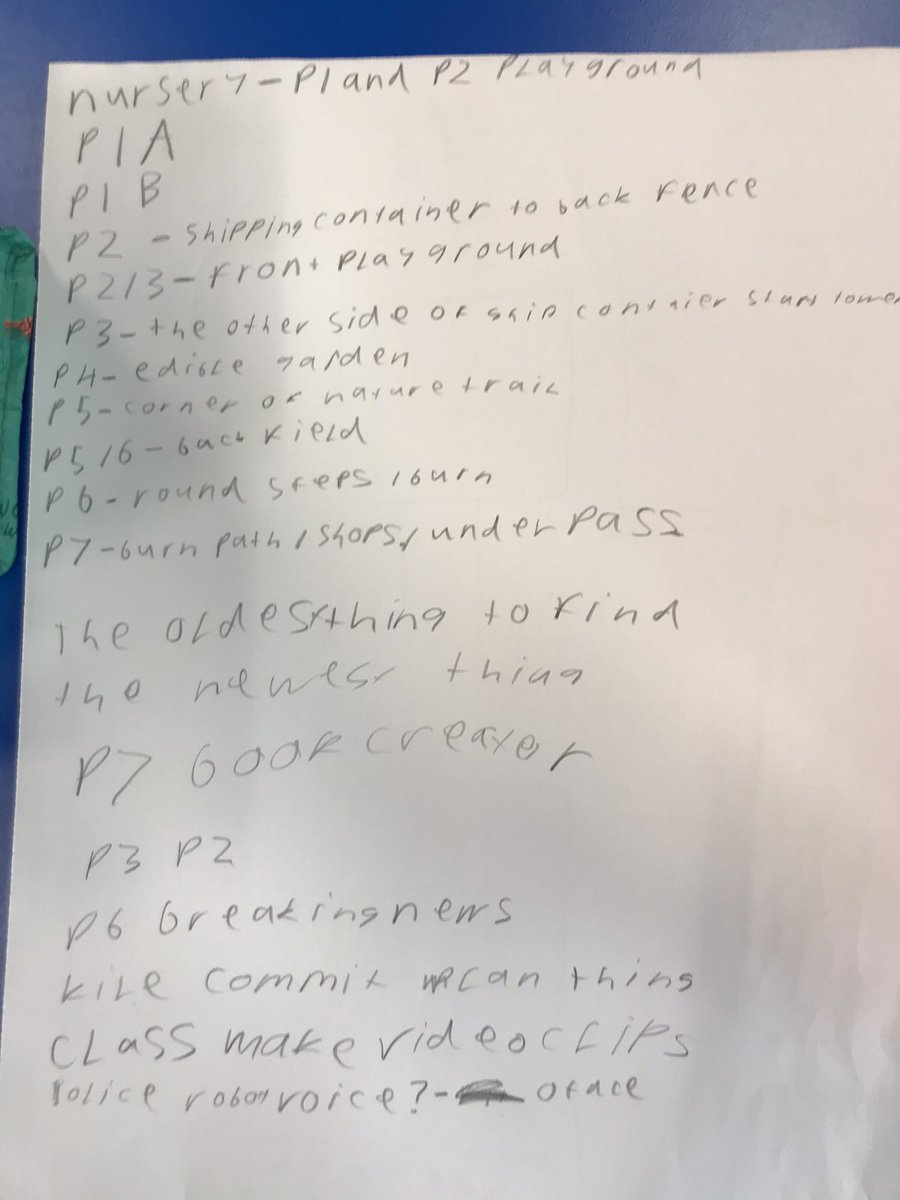 nursery - P1 and P2 Playground
P1A
P1 B
P2 - shipping container to back fence
P2/3 - front playground
P3 - the other side of skip contnier start tower
P4 - edible garden
P5 - corner of nature trail
P5/6 - back field
P6 - round steps / burn
P7 - burn path / shops / underpass
The oldest thing to find
the newest thing
P7 book creater
P3 P2
P6 breaking news
commit can thing
class make video clips
Police robot voice? -